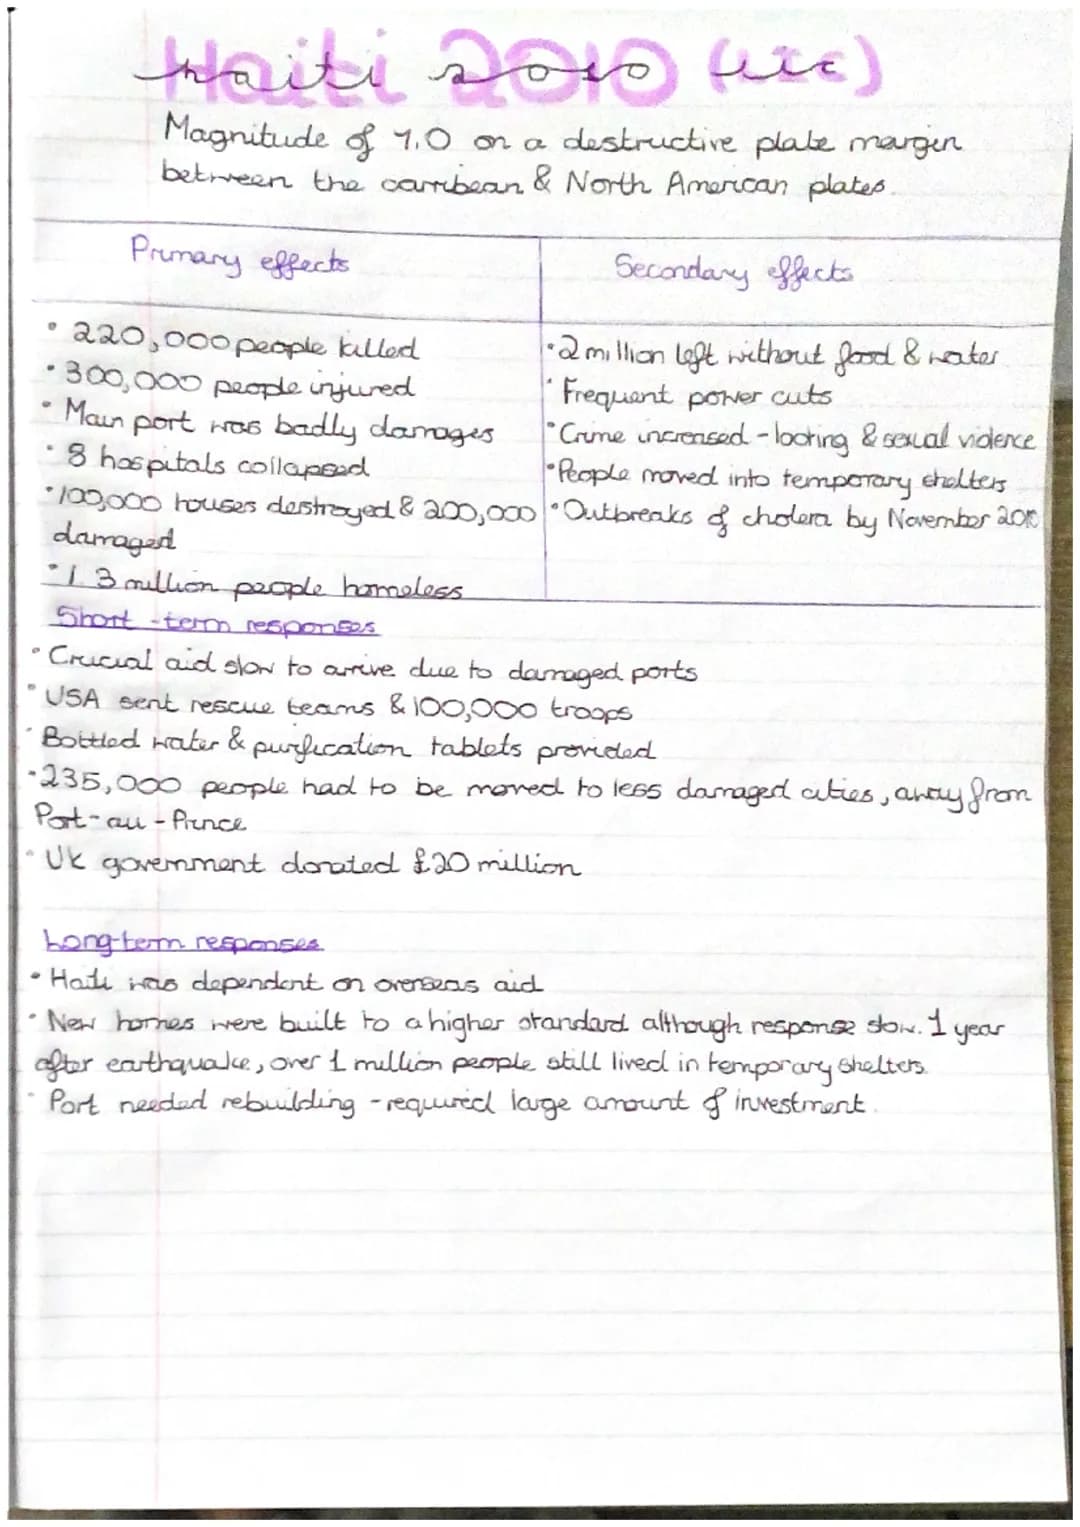 Haiti 2010 (LIC)
Magnitude of 7.0 on a destructive plate margin
between the carribean & North American plates.
Primary effects
• 220,000 people killed
• 300,000 people injured
• Main port was badly damages
• 8 hospitals collapsed
• 100,000 houses destroyed & 200,000
damaged
• 1.3 million people homeless
Secondary effects
• 2 million left without food & water
• Frequent power cuts
• Crime increased - looting & sexual violence
• People moved into temporary shelters
• Outbreaks of cholera by November 2010
Short-term responses
• Crucial aid slow to arrive due to damaged ports
• USA sent rescue teams & 100,000 troops
• Bottled water & purification tablets provided
• 235,000 people had to be moved to less damaged cities, away from
Port-au-Prince
• UK government donated £20 million
Long-term responses
• Haiti was dependent on overseas aid
• New homes were built to a higher standard although response slow. 1 year
after earthquake, over 1 million people still lived in temporary shelters.
• Port needed rebuilding - required large amount of investment.